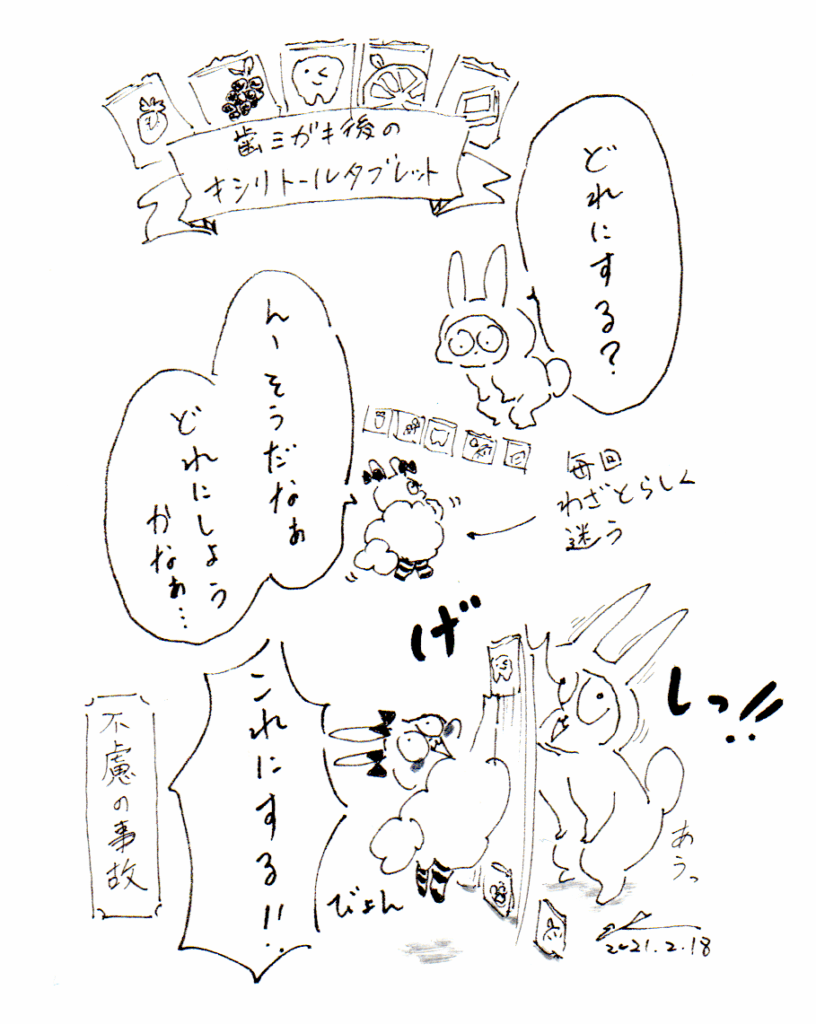 歯ミガキ後の
キシリトールタブレット
どれにする?
んーそうだなぁ
どれにしよう
かなぁ…
毎回
わざとらしく
迷う
げ
しっ!!
これにする!!
不慮の事故
びょん
あうっ
2021.2.18